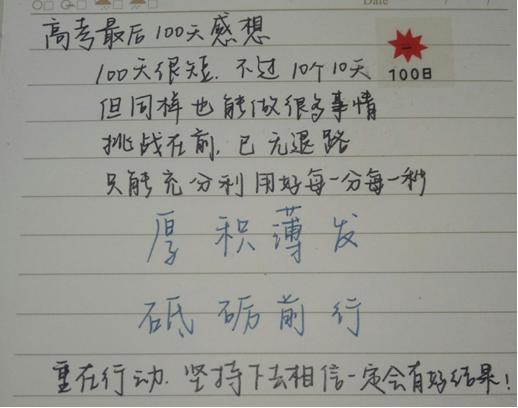 Date
高考最后100天感想
100天很短.不过10个10天
100日
但同样也能做很多事情
挑战在前,已无退路
只能充分利用好每一分每一秒
厚积薄发
砥砺前行
重在行动.坚持下去相信一定会有好结果!